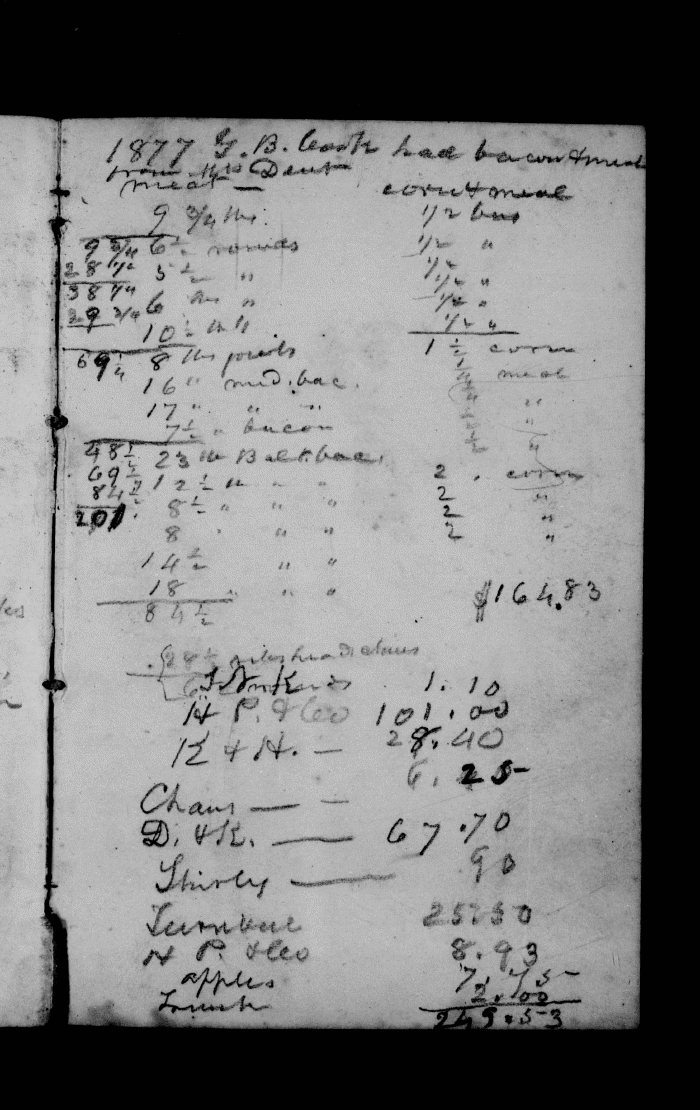 1877 G. B. Cook had bacon & meal
from Mrs Dent
meat — corn & meal
9 3/4 lbs. 1/2 bus
9 3/4 6 1/2 rounds 1/2 "
28 1/2 5 1/2 " 1/2
38 1/4 6 lbs " 1/2 "
29 3/4 1/2 "
10 1/2 lbs 1/2 "
69 1/4 8 lbs joints 1 1/2 corn
16 " med. bac. meal
17 " " " "
7 1/2 " bacon "
48 1/2 23 lb Balt bac.
69 1/2 12 1/2 lb " " 2 . corn
84 1/2 8 1/2 " " " 2 "
201. 8 " " 2 "
14 1/2 " " 2 "
18 " " "
84 1/2 $164.83
28 1/2
1.10
H P. & Co 101.00
K & H. — 28.40
6.25
Chaus — —
D. & K. — 67.70
Shirley — 90
Furniture 25.50
H P. & Co 8.93
apples 7.45
2.00
249.53